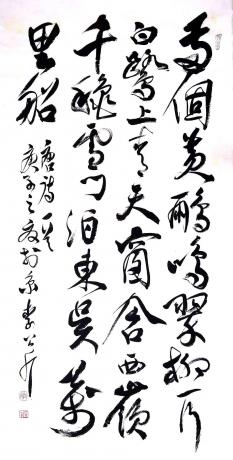 兩個黃鸝鳴翠柳一行
白鷺上青天窗含西嶺
千秋雪門泊東吳萬
里船
唐詩一首
庚子之夏於京李